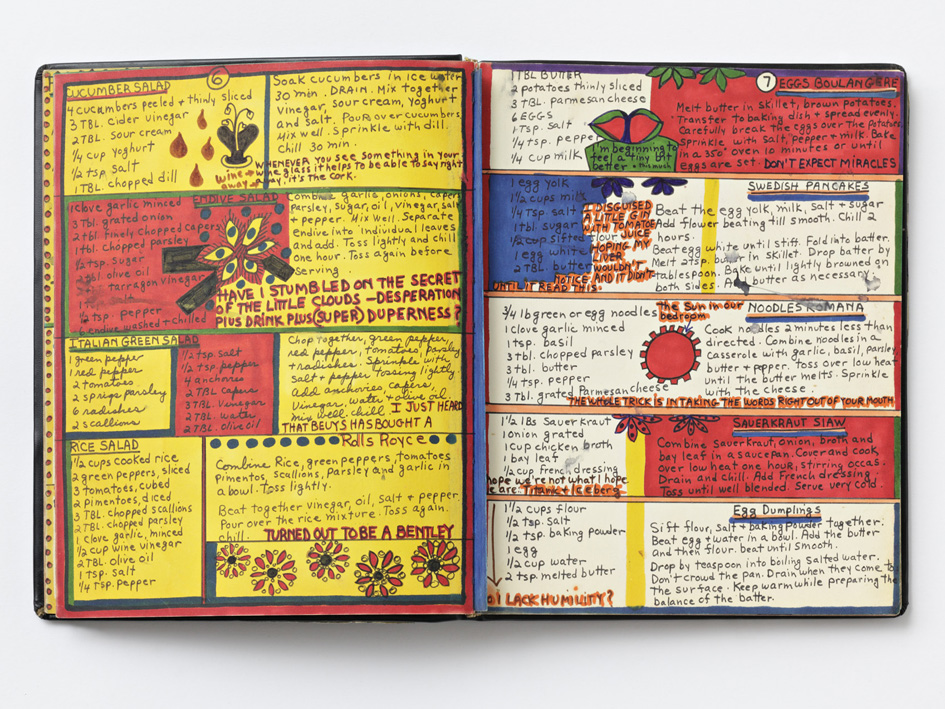 6
CUCUMBER SALAD
4 cucumbers peeled + thinly sliced
3 TBL. Cider vinegar
2 TBL. Sour cream
1/4 cup yoghurt
1/2 tsp. salt
1 TBL. chopped dill
Soak cucumbers in ice water
30 min. DRAIN. Mix together
vinegar, sour cream, Yoghurt
and salt. Pour over cucumbers
Mix well. Sprinkle with dill.
Chill 30 min.
WHENEVER YOU see something in your
wine glass it helps to be able to say right
away, it's the CORK.
ENDIVE SALAD
1 clove garlic minced
3 TBL. grated onion
2 tbl. finely chopped capers
1 tbl. chopped parsley
1/2 tsp. sugar
tbl. olive oil
tarragon vinegar
salt
1/4 tsp. pepper
6 endive washed + chilled
Combine garlic, onions, capers
parsley, sugar, oil, vinegar, salt
+ pepper. Mix well. Separate
endive into individual leaves
and add. Toss lightly and chill
one hour. Toss again before
serving
HAVE I STUMBLED ON THE SECRET
OF THE LITTLE CLOUDS – DESPERATION
PLUS DRINK PLUS (SUPER) DUPERNESS?
ITALIAN GREEN SALAD
1 green pepper
1 red pepper
2 tomatoes
2 sprigs parsley
6 radishes
2 scallions
1/2 tsp. salt
1/2 tsp. pepper
4 anchovies
2 TBL. Capers
3 TBL. Vinegar
2 TBL. water
2 TBL. olive oil
Chop together, green pepper,
red pepper, tomatoes, parsley
+ radishes. Sprinkle with
salt + pepper. tossing lightly
add anchovies, capers,
Vinegar, water + olive oil
mix well. chill. I JUST HEARD
THAT BEUYS HAS BOUGHT A
Rolls Royce
RICE SALAD
1 1/2 cups cooked rice
2 green peppers, sliced
3 tomatoes, cubed
2 pimentos, diced
3 TBL. chopped scallions
2 TBL. chopped parsley
1 clove garlic, minced
1/2 cup wine vinegar
2 TBL. olive oil
1 tsp. salt
1/4 tsp. pepper
Combine Rice, green peppers, tomatoes
pimentos, scallions, Parsley and garlic in
a bowl. Toss lightly.
Beat together vinegar, oil, salt + pepper.
Pour over the rice mixture. Toss again.
chill. TURNED OUT TO BE A BENTLEY
7
EGGS BOULANGERE
1 TBL BUTTER
2 potatoes thinly sliced
3 TBL. parmesan cheese
6 EGGS
1 tsp. salt
1/4 tsp. pepper
1/4 cup milk
I'm beginning to
feel a tiny bit
better + this much
Melt butter in skillet, brown potatoes.
Transfer to baking dish + spread evenly.
Carefully break the eggs over the potatoes
Sprinkle with Salt, Pepper + milk. Bake
in a 350° oven 10 minutes or until
eggs are set. DON'T EXPECT MIRACLES
SWEDISH PANCAKES
1 egg yolk
1 1/2 cups milk
1/4 Tsp. salt
1 tbl. sugar
1/2 cup sifted flour
1 egg white
2 TBL. butter
I DISGUISED
A LITTLE GIN
WITH TOMATOE
JUICE
HOPING MY
LIVER
WOULDN'T
NOTICE AND IT DIDN'T
UNTIL IT READ THIS.
Beat the egg yolk, milk, salt + sugar
Add flower beating till smooth. Chill 2
hours.
Beat egg white until stiff. Fold into batter.
Melt 2 tsp. butter in Skillet. Drop batter by
tablespoon. Bake until lightly browned on
both sides. Add butter as necessary
NOODLES ROMANA
3/4 lb green or egg noodles
1 clove garlic minced
1 tsp. basil
3 tbl. chopped parsley
3 tbl. butter
1/4 tsp. pepper
3 tbl. grated Parmesan cheese
the sun in our
bedroom
Cook noodles 2 minutes less than
directed. Combine noodles in a
casserole with garlic, basil, parsley
butter + pepper. Toss over low heat
until the butter melts. Sprinkle
with the cheese.
THE WHOLE TRICK IS IN TAKING THE WORDS RIGHT OUT OF YOUR MOUTH
SAUERKRAUT SLAW
1 1/2 lbs Sauerkraut
1 onion grated
1 cup chicken broth
1 bay leaf
1/2 cup French dressing
hope we're not what I hope
we are. Titanic + Iceberg
Combine Sauerkraut, onion, broth and
bay leaf in a saucepan. Cover and cook
over low heat one hour, stirring occas.
Drain and chill. Add French dressing
Toss until well blended. Serve very cold.
Egg Dumplings
1 1/2 cups flour
1/2 tsp. salt
1/2 tsp. baking powder
1 egg
1/2 cup water
2 tsp. melted butter
DO I LACK HUMILITY?
Sift flour, Salt + baking powder together.
Beat egg + water in a bowl. Add the butter
and then flour. beat until Smooth.
Drop by teaspoon into boiling Salted water.
Don't crowd the pan. Drain when they come to
the surface. Keep warm while preparing the
balance of the batter.